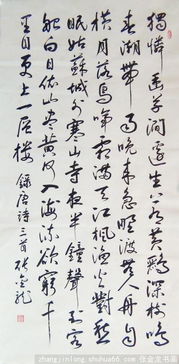 獨憐幽草澗邊生上有黃鸝深樹鳴
春潮帶雨晚來急野渡無人舟自
橫月落烏啼霜滿天江楓漁火對愁
眠姑蘇城外寒山寺夜半鐘聲到客
船白日依山盡黃河入海流欲窮千
里目更上一層樓 錄唐詩三首 張金龍
zhangjinlong.shuhua66.com